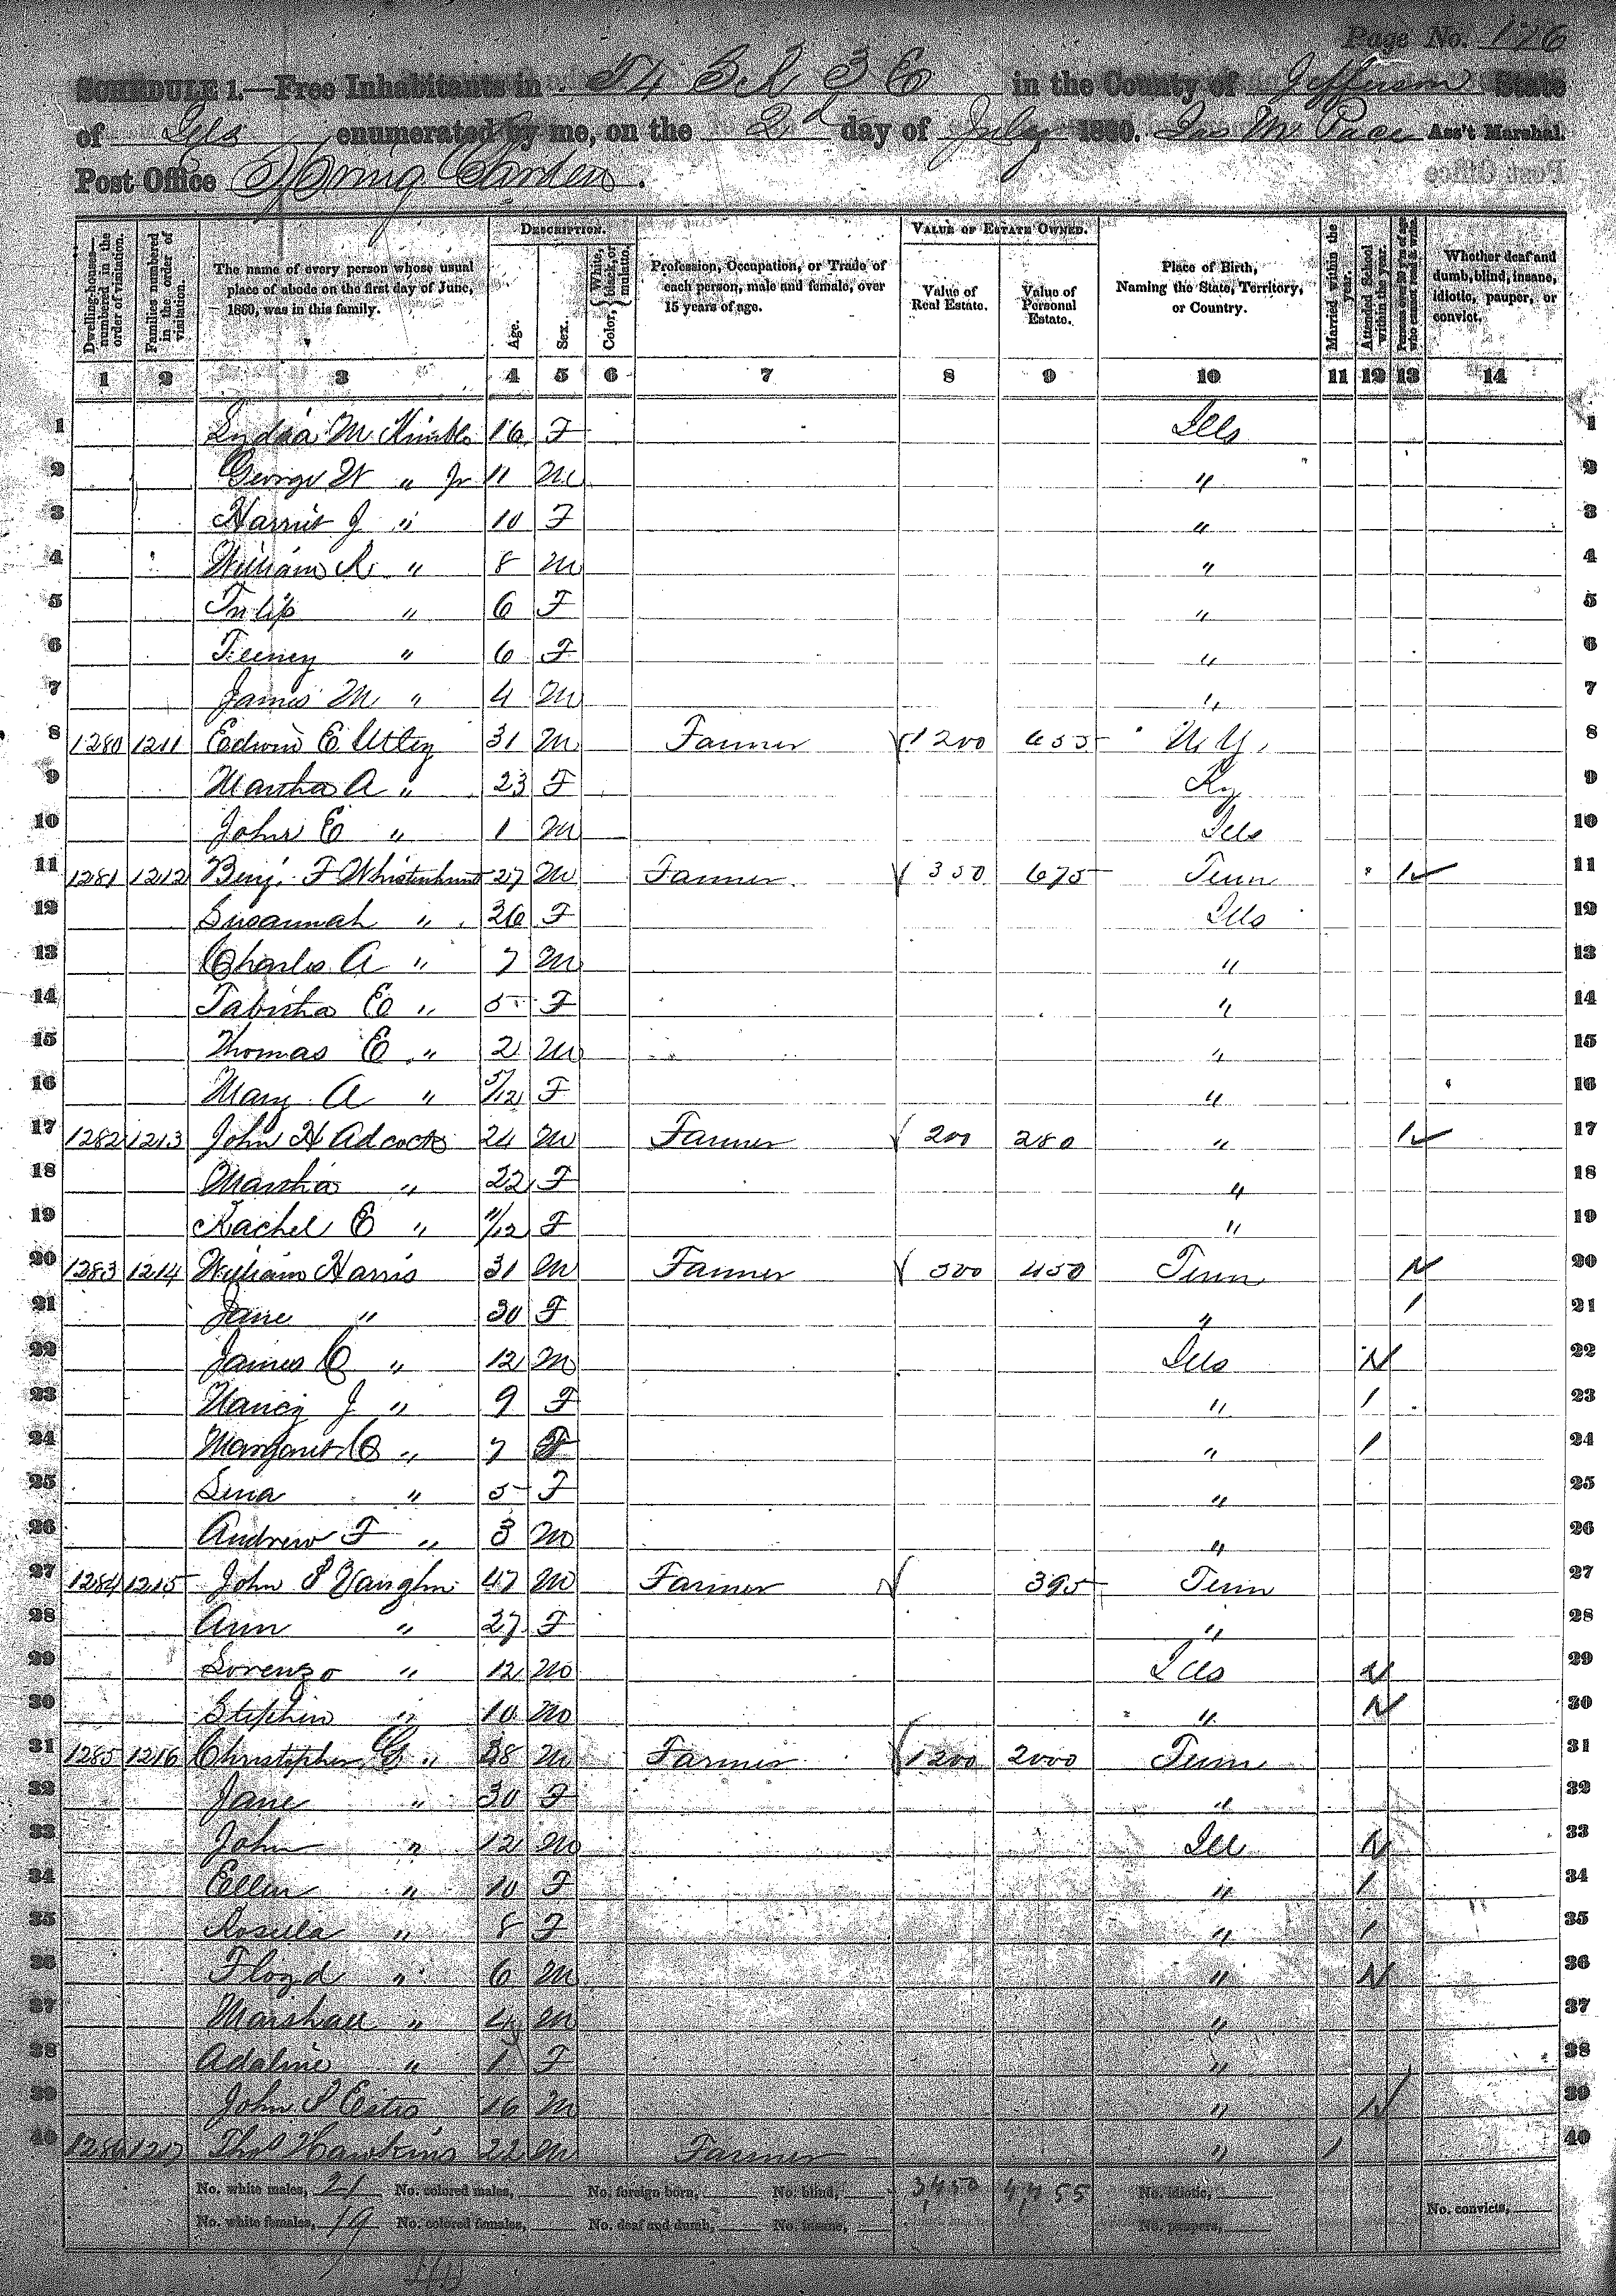 Page No. 176
SCHEDULE 1.—Free Inhabitants in T4 S R 3 E in the County of Jefferson State
of Ills enumerated by me, on the 2d day of July 1860. Jas M Pace Ass't Marshal.
Post Office Spring Garden.
Dwelling-houses—numbered in the order of visitation.
Families numbered in the order of visitation.
The name of every person whose usual place of abode on the first day of June, 1860, was in this family.
DESCRIPTION.
Age.
Sex.
Color, { White, black, or mulatto.
Profession, Occupation, or Trade of each person, male and female, over 15 years of age.
VALUE OF ESTATE OWNED.
Value of Real Estate.
Value of Personal Estate.
Place of Birth, Naming the State, Territory, or Country.
Married within the year.
Attended School within the year.
Persons over 20 y'rs of age who cannot read & write.
Whether deaf and dumb, blind, insane, idiotic, pauper, or convict.
1 2 3 4 5 6 7 8 9 10 11 12 13 14
1 Lydia M Kimble 16 F Ills 1
2 George W " Jr 11 M " 2
3 Harriet J " 10 F " 3
4 William R " 8 M " 4
5 Tulip " 6 F " 5
6 " 6 F " 6
7 James M " 4 M " 7
8 1280 1211 Edwin E Utley 31 M Farmer 1200 455 N.Y. 8
9 Martha A " 23 F Ky 9
10 John E " 1 M Ills 10
11 1281 1212 Benj. F Whisenhunt 27 M Farmer 350 675 Tenn 1 11
12 Susannah " 26 F Ills 12
13 Charles A " 7 M " 13
14 Tabitha E " 5 F " 14
15 Thomas E " 2 M " 15
16 Mary A " 5/12 F " 16
17 1282 1213 John H Adcock 24 M Farmer 200 280 " 1 17
18 Martha " 22 F " 18
19 Rachel E " 11/12 F " 19
20 1283 1214 William Harris 31 M Farmer 500 450 Tenn 1 20
21 Jane " 30 F " 1 21
22 James C " 12 M Ills 1 22
23 Nancy J " 9 F " 1 23
24 Margaret C " 7 F " 1 24
25 Lina " 5 F " 25
26 Andrew F " 3 M " 26
27 1284 1215 John S Vaughn 47 M Farmer 395 Tenn 27
28 Ann " 37 F " 28
29 Lorenzo " 12 M Ills 1 29
30 Stephen " 10 M " 1 30
31 1285 1216 Christopher G " 38 M Farmer 1200 2000 Tenn 31
32 Jane " 30 F " 32
33 John " 12 M Ill 1 33
34 Ellen " 10 F " 1 34
35 Rosella " 8 F " 1 35
36 Floyd " 6 M " 1 36
37 Marshall " 4 M " 37
38 Adaline " 1 F " 38
39 John S Estes 16 M " 1 39
40 1286 1217 Thos Hawkins 22 M Farmer " 1 40
No. white males, 21 No. colored males, No. foreign born, No. blind, 3,450 4,455 No. idiotic,
No. white females, 19 No. colored females, No. deaf and dumb, No. insane, No. paupers, No. convicts,